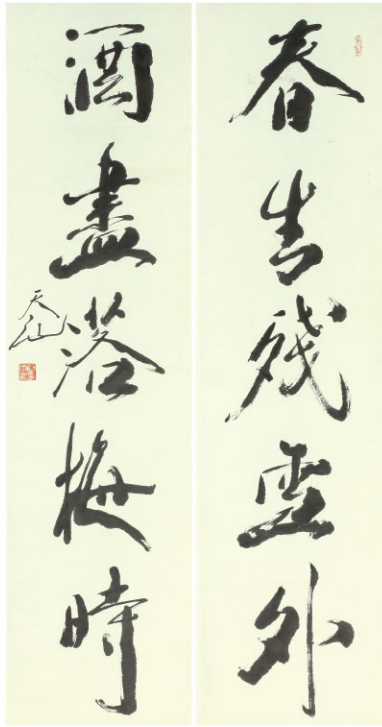 春生殘雪外
酒盡落梅時
天